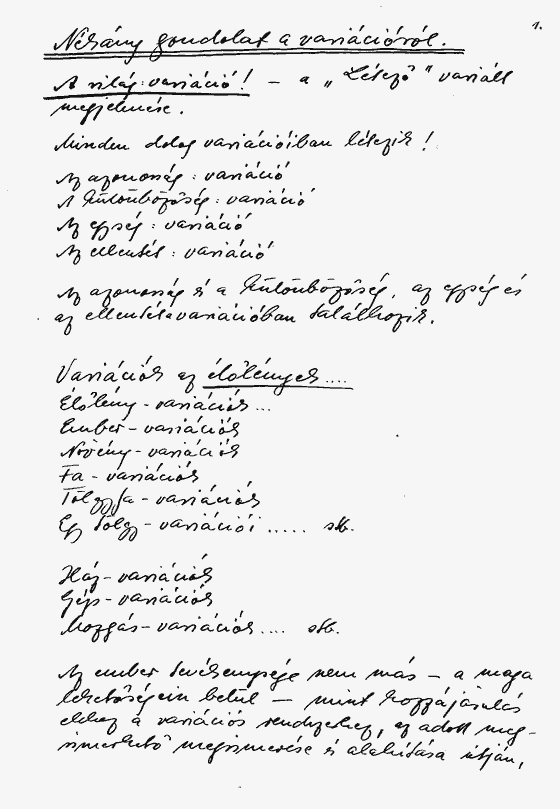 1.
Néhány gondolat a variációról.
A világ: variáció! – a „Létező" variált
megjelenése.
Minden dolog variációiban létezik!
Az azonosság: variáció
A különbözőség: variáció
Az egység: variáció
Az ellentét: variáció
Az azonosság és a különbözőség, az egység és
az ellentét a variációban találkozik.
Variációk az élőlények....
Élőlény-variációk...
Ember-variációk
Növény-variációk
Fa-variációk
Tölgyfa-variációk
Egy tölgy-variációi ..... stb.
Ház-variációk
Gép-variációk
Mozgás-variációk.... stb.
Az ember tevékenysége nem más – a maga
lehetőségein belül – mint hozzájárulás
ehhez a variációs rendszerhez, az adott meg-
ismerhető megismerése és alakítása útján,